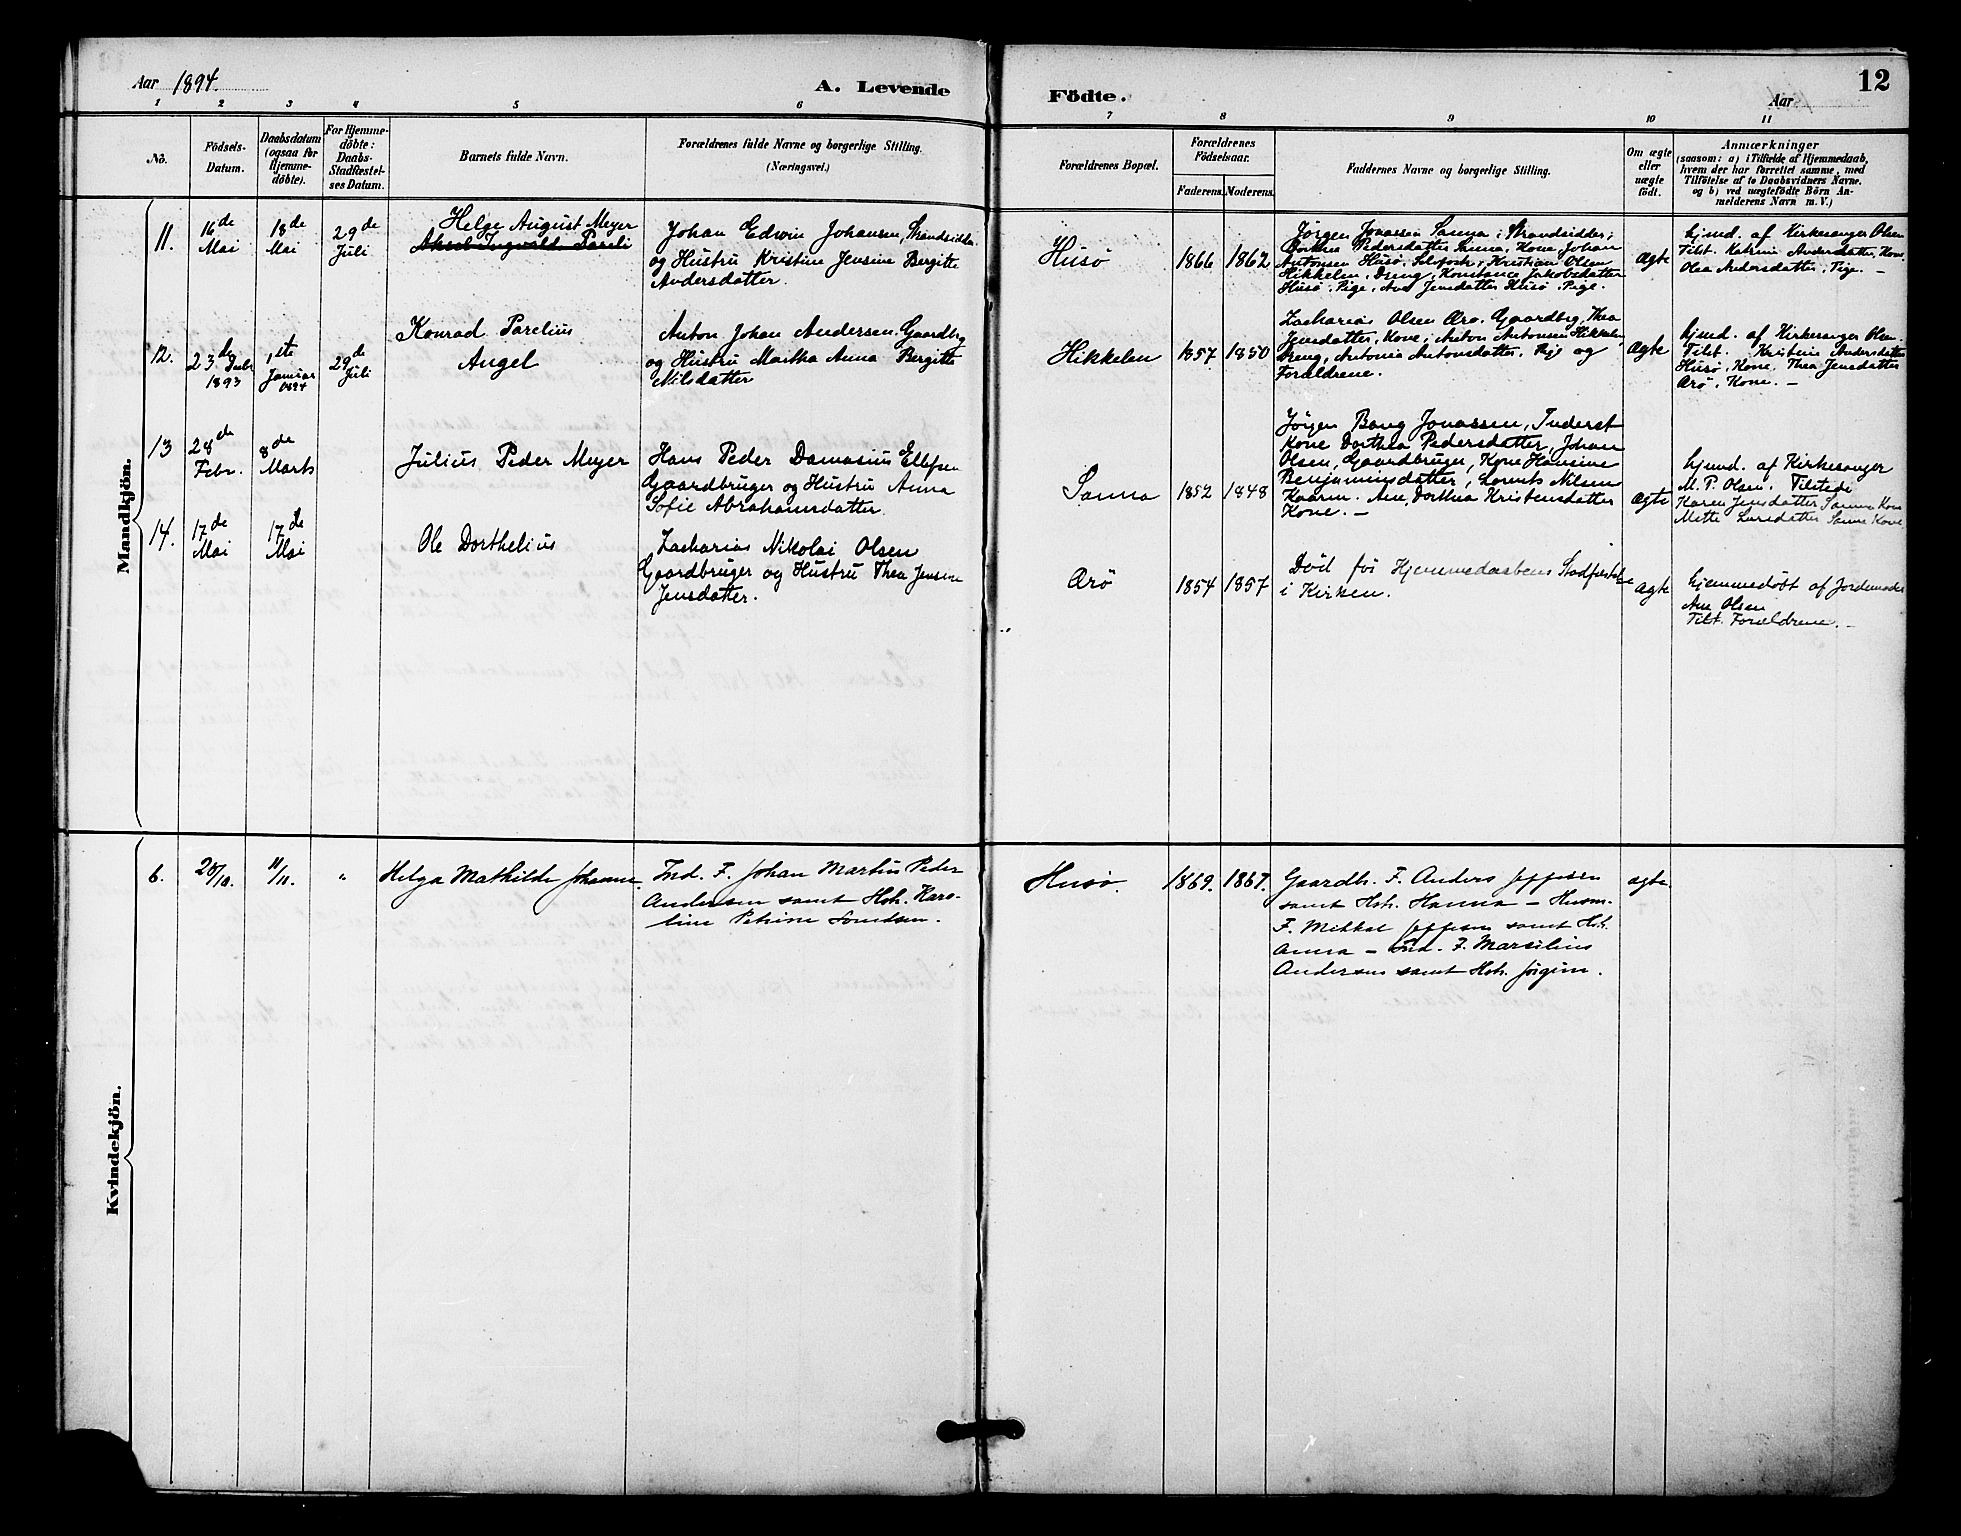 Aar 1894.
A. Levende Födte.
Aar
12
1 2 3 4 5 6 7 8 9 10 11
No.
Födsels-
Datum.
Daabsdatum
(ogsaa for
Hjemme-
döbte).
For Hjemme-
döbte:
Daabs-
Stadfæstel-
ses Datum.
Barnets fulde Navn.
Forældrenes fulde Navne og borgerlige Stilling.
(Næringsvei.)
Forældrenes Bopæl.
Forældrenes
Födselsaar.
Faderens. Moderens.
Faddernes Navne og borgerlige Stilling.
Om ægte
eller
uægte
födt.
Anmærkninger
(saasom: a) i Tilfælde af Hjemmedaab,
hvem der har forrettet samme, med
Tilföielse af to Daabsvidners Navne.
og b) ved uægtefödte Börn An-
melderens Navn m. V.)
Mandkjön.
11.
16de
Mai
18de
Mai
29de
Juli
Helge August Meyer
Aksel Ingvald Pareli
Johan Edwin Johansen, Strandsidder
og Hustru Kristine Jensine Bergitte
Andersdatter.
Husø
1866
1862
Jørgen Jonassen Sanna, Strandsidder;
Pedersdatter Sanna, Kone, Johan
Antonsen Husø, Kristian Olsen
Hikkelen, Dreng, Konstance Jakobsdatter
Husø, Pige, Ane Jensdatter Husø, Pige.
ægte
hjmd. af Kirkesanger Olsen
Tilst. Katrine Andersdatter, Kone
Olea Andersdatter, Pige. –
12.
23de
1893
1ste
Januar
1894
29de
Juli
Konrad Parelius
Angel
Anton Johan Andersen, Gaardbrg
og Hustru Martha Anna Bergitte
Nilsdatter
Hikkelen
1857
1850
Zacharias Olsen Arø, Gaardbrg, Thea
Jensdatter, Kone, Anton Antonsen Hikkelen
Dreng, Antonia Antonsdatter, Pige og
Forældrene.
ægte
hjmd. af Kirkesanger Olsen.
Tilst. Kristine Andersdatter
Husø, Kone, Thea Jensdatter
Arø, Kone. –
13
28de
Febr.
8de
Marts
Julius Peder Meyer
Hans Peder Damasius Ellefsen
Gaardbruger og Hustru Anna
Sofie Abrahamsdatter.
Sanna
1852
1848
Jørgen Bang Jonassen, Inderst
Kone Dorthea Pedersdatter, Johan
Olsen, Gaardbruger, Kone Hansine
Benjaminsdatter, Lorents Nilsen
Kaarin. Ane Dorthea Kristensdatter
Kone. –
ægte
hjmd. af Kirkesanger
M. P. Olsen. Tilstede
Karen Jensdatter Sanna Kone
Mette Larsdatter Sanna Kone
14.
17de
Mai
17de
Mai
Ole Dorthelius
Zacharias Nikolai Olsen
Gaardbruger og Hustru Thea Jensine
Jensdatter.
Arö
1854
1857
Död før Hjemmedaabens Stadfæstelse
i Kirken.
ægte
hjemmedøbt af Jordemoder
Ane Olsen
Tilst. Forældrene. –
Kvindekjön.
6.
11/11.
"
Helga Mathilde Johanne.
Ind. F. Johan Martin Peder
Andersen samt Hstr. Karo-
line Petrine
Husø.
1869.
1867.
Gaardb. F. Anders Jeppesen
samt Hstr. Hanna – Husm.
F. Mikkal Jeppesen samt Hstr.
Anna – Ind. F. Marselius
Andersen samt Hstr. Jørgine.
ægte.